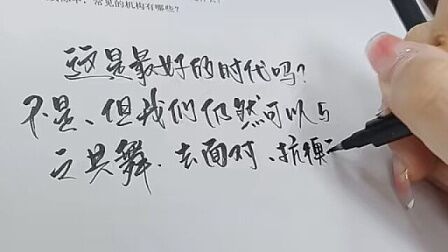 常见的机构有哪些?
这是最好的时代吗?
不是、但我们仍然可以与
之共舞.去面对、抗衡